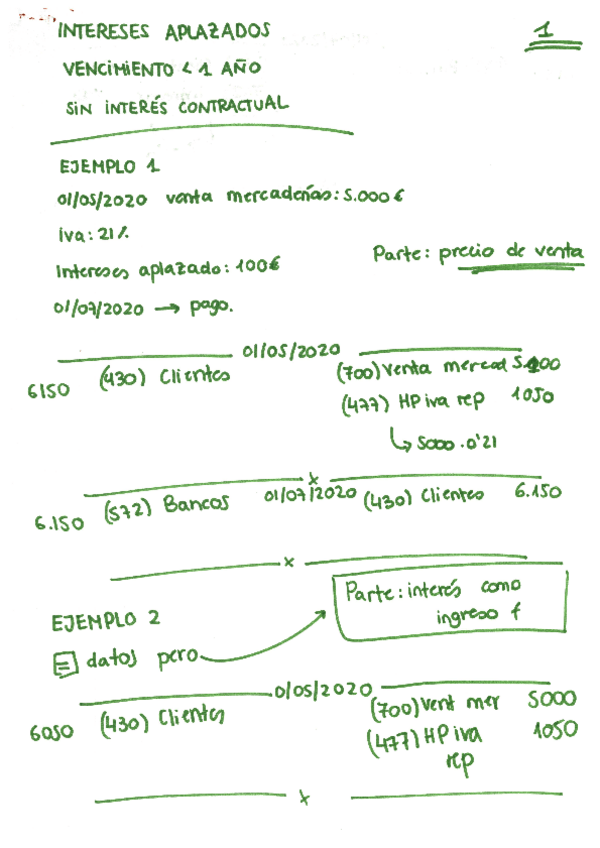 INTERESES APLAZADOS
1
VENCIMIENTO < 1 AÑO
SIN INTERÉS CONTRACTUAL
EJEMPLO 1
01/05/2020 venta mercaderías: 5.000 €
iva: 21%
Intereses aplazado: 100€
Parte: precio de venta
01/07/2020 → pago.
01/05/2020
6150 (430) Clientes (700) Venta mercad 5.100
(477) HP iva rep 1050
↳ 5000 . 0'21
x
6.150 (572) Bancos 01/07/2020 (430) Clientes 6.150
x
EJEMPLO 2
Parte: interés como
ingreso f
datos pero
01/05/2020
6050 (430) Clientes (700) Vent mer 5000
(477) HP iva 1050
rep
x